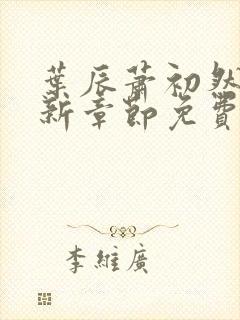 葉辰蕭初然
新章節免費
李維廣